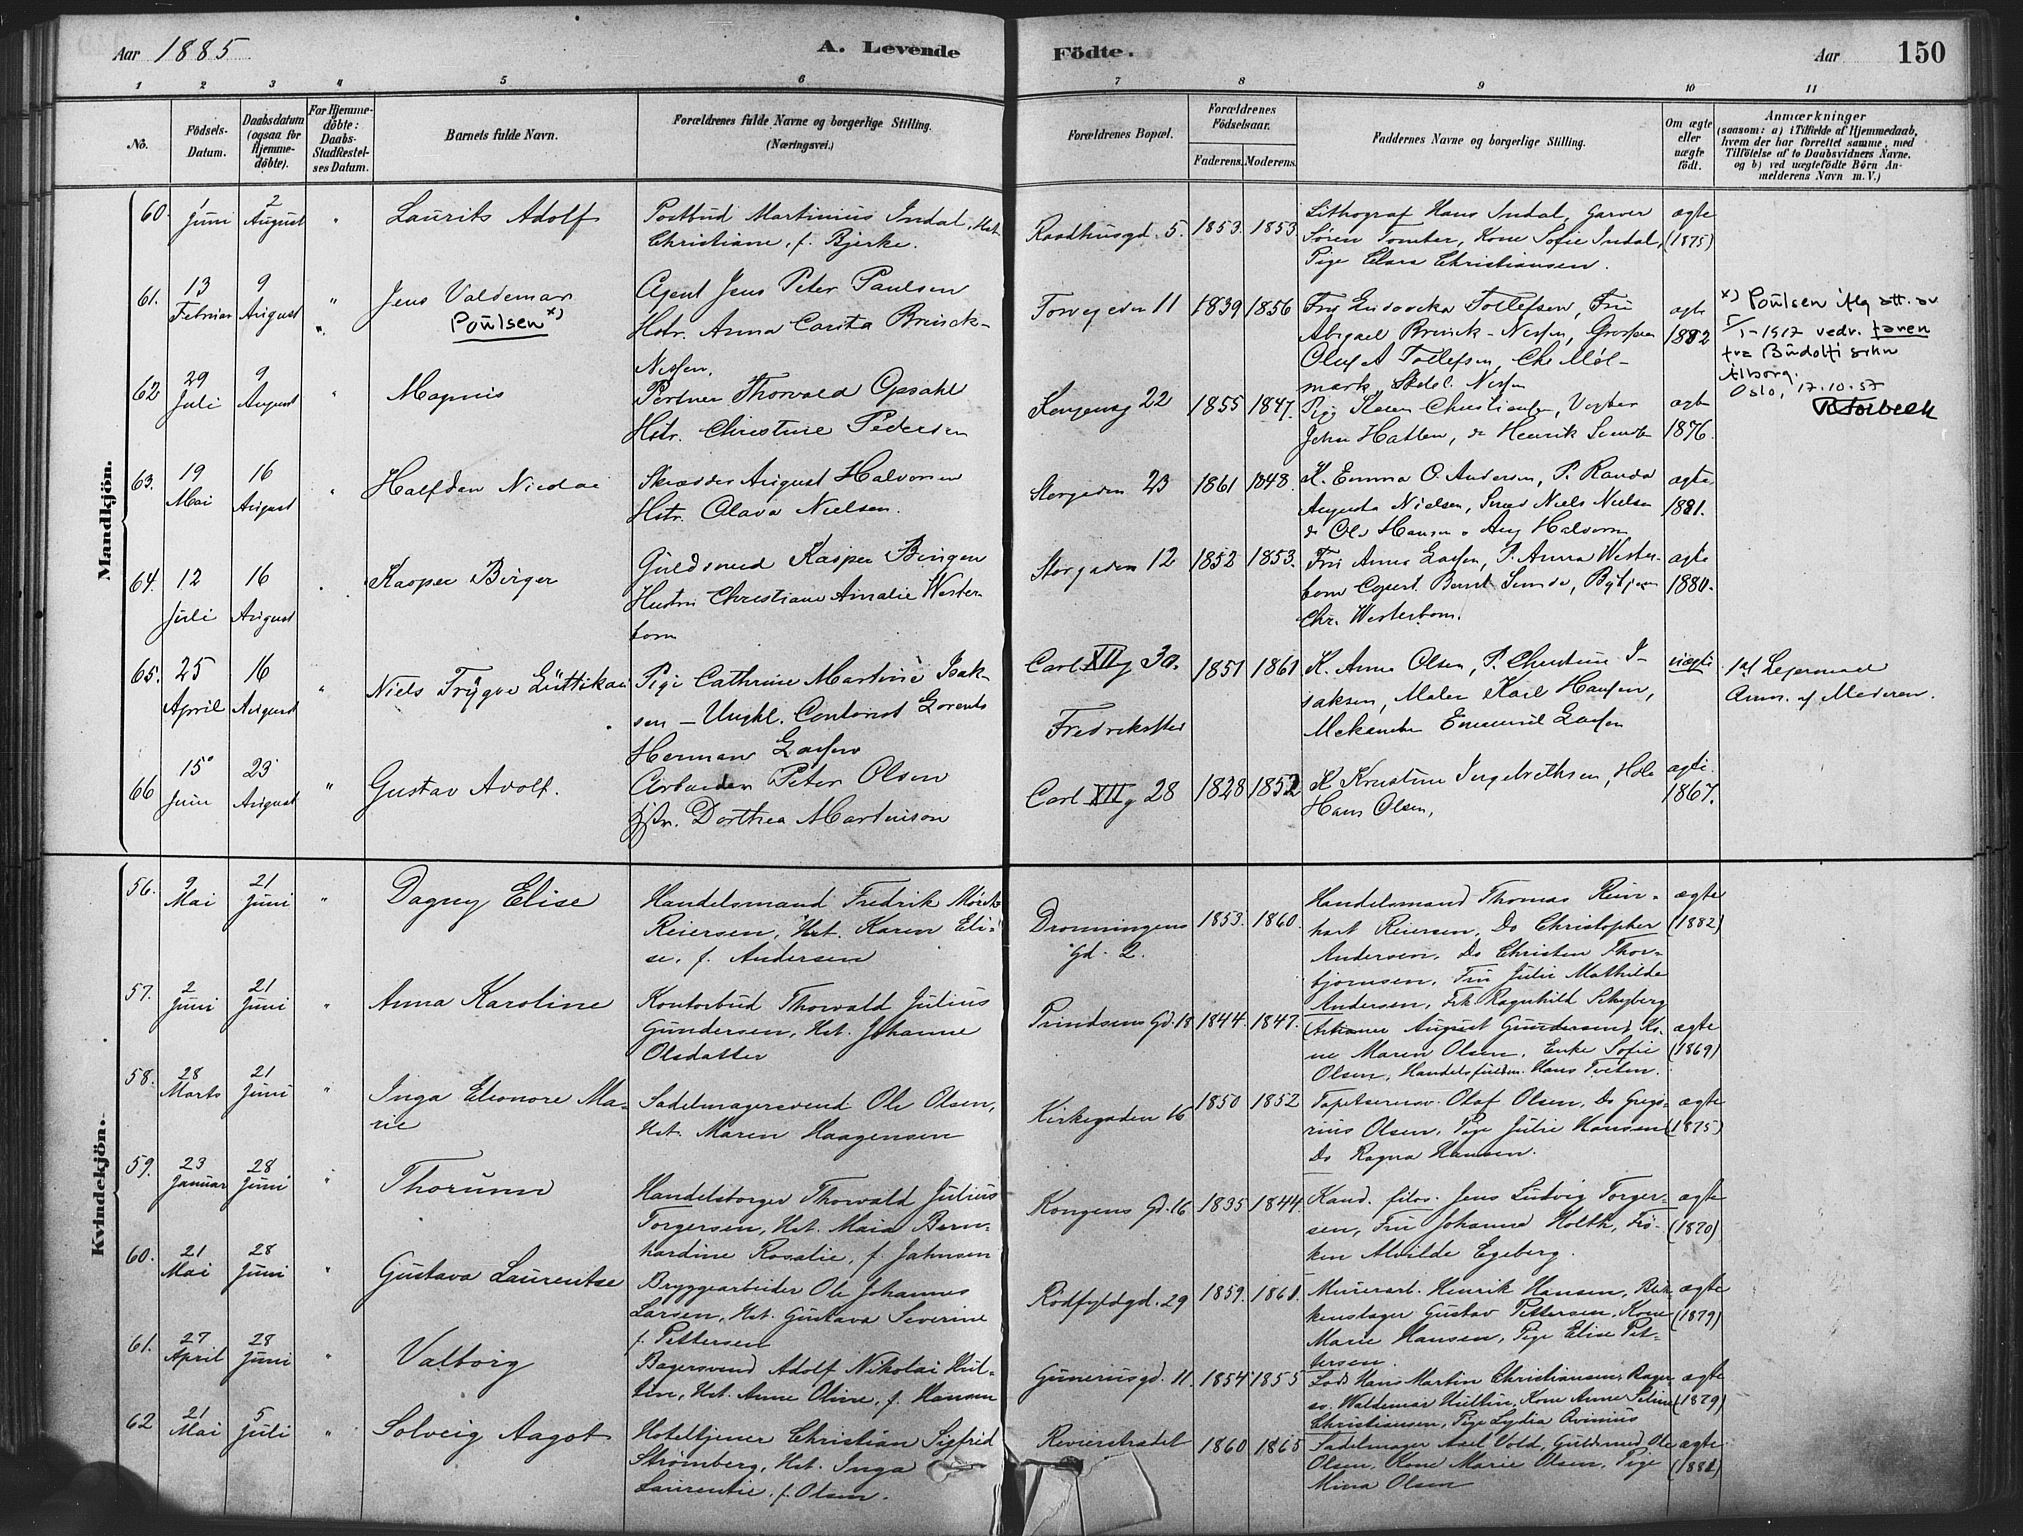 Aar 1885
A. Levende
Födte.
Aar
150
1 2 3 4 5 6 7 8 9 10 11
No.
Födsels-
Datum.
Daabsdatum
(ogsaa for
Hjemme-
döbte).
For Hjemme-
döbte:
Daabs-
Stadfæstel-
ses Datum.
Barnets fulde Navn.
Forældrenes fulde Navne og borgerlige Stilling.
(Næringsvei.)
Forældrenes Bopæl.
Forældrenes
Födselsaar.
Faderens. Moderens.
Faddernes Navne og borgerlige Stilling.
Om ægte
eller
uægte
födt.
Anmærkninger
(saasom: a) i Tilfælde af Hjemmedaab,
hvem der har forrettet samme, med
Tilföielse af to Daabsvidners Navne.
og b) ved uægtefödte Börn An-
melderens Navn m. V.)
Mandkjön.
60. 1 Juni 2 August " Laurits Adolf
Postbud Martinius Indal, Hst.
Christiane, f. Bjerke.
Raadhusgd. 5. 1853. 1853
Lithograf Hans Indal, Garver
Søren Tomter, Kone Sofie Indal,
Pige Clara Christiansen.
ægte
(1875)
61. 13 Februar 9 August " Jens Valdemar
Poulsen x)
Agent Jens Peter Paulsen
Hstr. Anna Carita Brinck-
Nissen.
Torvgaden 11 1839 1856
Frk Ludovika Tollefsen, Fru
Abigael Brinck-Nissen, Grosserer
Oluf A Tollefsen, Chr Møl-
mark, Nissen
ægte
1882
x) Poulsen iflg att. av
5/1-1917 vedr. faren
fra Budolfi sokn
Ålborg.
Oslo, 17.10.57
62 29 Juli 9 August " Magnus
Portner Thorvald Opsahl
Hstr. Christine Pedersen
Kongensg 22 1855 1847.
Pige Karen Christiansen, Vogter
John Hatlen, do Henrik
ægte
1876.
63. 19 Mai 16 August " Halfdan Nicolai
Skrædder August Halvorsen
Hstr. Olava Nielsen.
Storgaden 23 1861 1848
K. Emma O. Andersen, P. Randa
Augusta Nielsen, Niels Nielsen
do Ole Hansen, Aug Halvorsen
ægte
1881.
64. 12 Juli 16 August " Kasper Birger
Guldsmed Kasper Bingen
Hustru Christiane Amalie Wester-
born
Storgaden 12 1852 1853.
Fru Anna Larsen, P. Anna Wester-
born Copist Bernt
Chr. Westerborn.
ægte
1880.
65. 25 April 16 August " Niels Trygve
Pige Cathrine Martine Isak-
sen - Ungkl. Contorist Lorents
Herman Larsen
Carl XII g 30. 1851 1861
Fredrikshald
K. Anna Olsen, P. Christine I-
saksen, Maler Karl Hansen,
Emanuel Larsen
uægte
1st Leiermaal
Anm. af Moderen.
66 15 Juni 23 August " Gustav Adolf.
Arbeider Peter Olsen
Hstr. Dorthea Martinson
Carl XII g 28 1828 1852
K Kristine Ingebrethsen,
Hans Olsen,
ægte.
1867.
Kvindekjön.
56. 9 Mai 21 Juni " Dagny Elise
Handelsmand Fredrik Mørch
Reiersen, Hst. Karen Eli-
se, f. Andersen
Dronningens
Gd. 2. 1853. 1860.
Handelsmand Thomas Rein-
hart Reiersen, Do Christopher
Andersen, Do Christen Thor-
bjørnsen, Fru Julie Mathilde
Andersen, Frk. Ragnhild Schyberg
ægte
(1882)
57. 2 Juni 21 Juni " Anna Karoline
Kontorbud Thorvald Julius
Gundersen, Hst. Johanne
Olsdatter
Prindsens Gd. 18 1844. 1847.
August Gundersen, Ko-
ne Maren Olsen, Enke Sofie
Olsen, Hans Tveten.
ægte
(1869)
58. 28 Marts 21 Juni " Inga Eleonore Ma-
rie
Sadelmagersvend Ole Olsen,
Hst. Maren Haagensen
Kirkegaden 16 1850 1852
Tapetserersv. Olaf Olsen, Do Grego-
rius Olsen, Pige Julie Hansen
Do Ragna Hansen.
ægte
(1875)
59. 23 Januar 28 Juni " Thorunn
Handelsborger Thorvald Julius
Torgersen, Hst. Maria Bern-
hardine Rosalie, f. Jahnsen
Kongens Gd. 16 1835 1844.
Kand. filos. Jens Ludvig Torger-
sen, Fru Johanne Holth, Frø-
ken Alvilde Egeberg.
ægte
(1870)
60. 21 Mai 28 Juni " Gustava Laurentse
Bryggearbeider Ole Johannes
Larsen, Hst. Gustava Severine
f. Pettersen
Rødfyldgd. 29 1859. 1861.
Murerarb. Henrik Hansen, Blik-
kenslager Gustav Pettersen, Kone
Marie Hansen, Pige Elise Pet-
tersen.
ægte
(1879)
61. 27 April 28 Juni " Valborg
Bagersvend Adolf Nikolai Hul-
tin, Hst. Anne Oline, f. Hansen
Gunerius gd. 11. 1854 1855
Lods Hans Martin Christiansen, Bager-
sv. Waldemar Hultin, Kone Anne Seline
Christiansen, Pige Lydia
ægte
(1879)
62 21 Mai 5 Juli " Solveig Aagot
Hoteltjener Christian Sigfrid
Strömberg, Hst. Inga
Laurentie, f. Olsen.
Revierstrædet 1860 1865
Sadelmager Axel Vold, Guldsmed Ole
Olsen, Kone Marie Olsen, Pige
Mina Olsen
ægte
(1881)